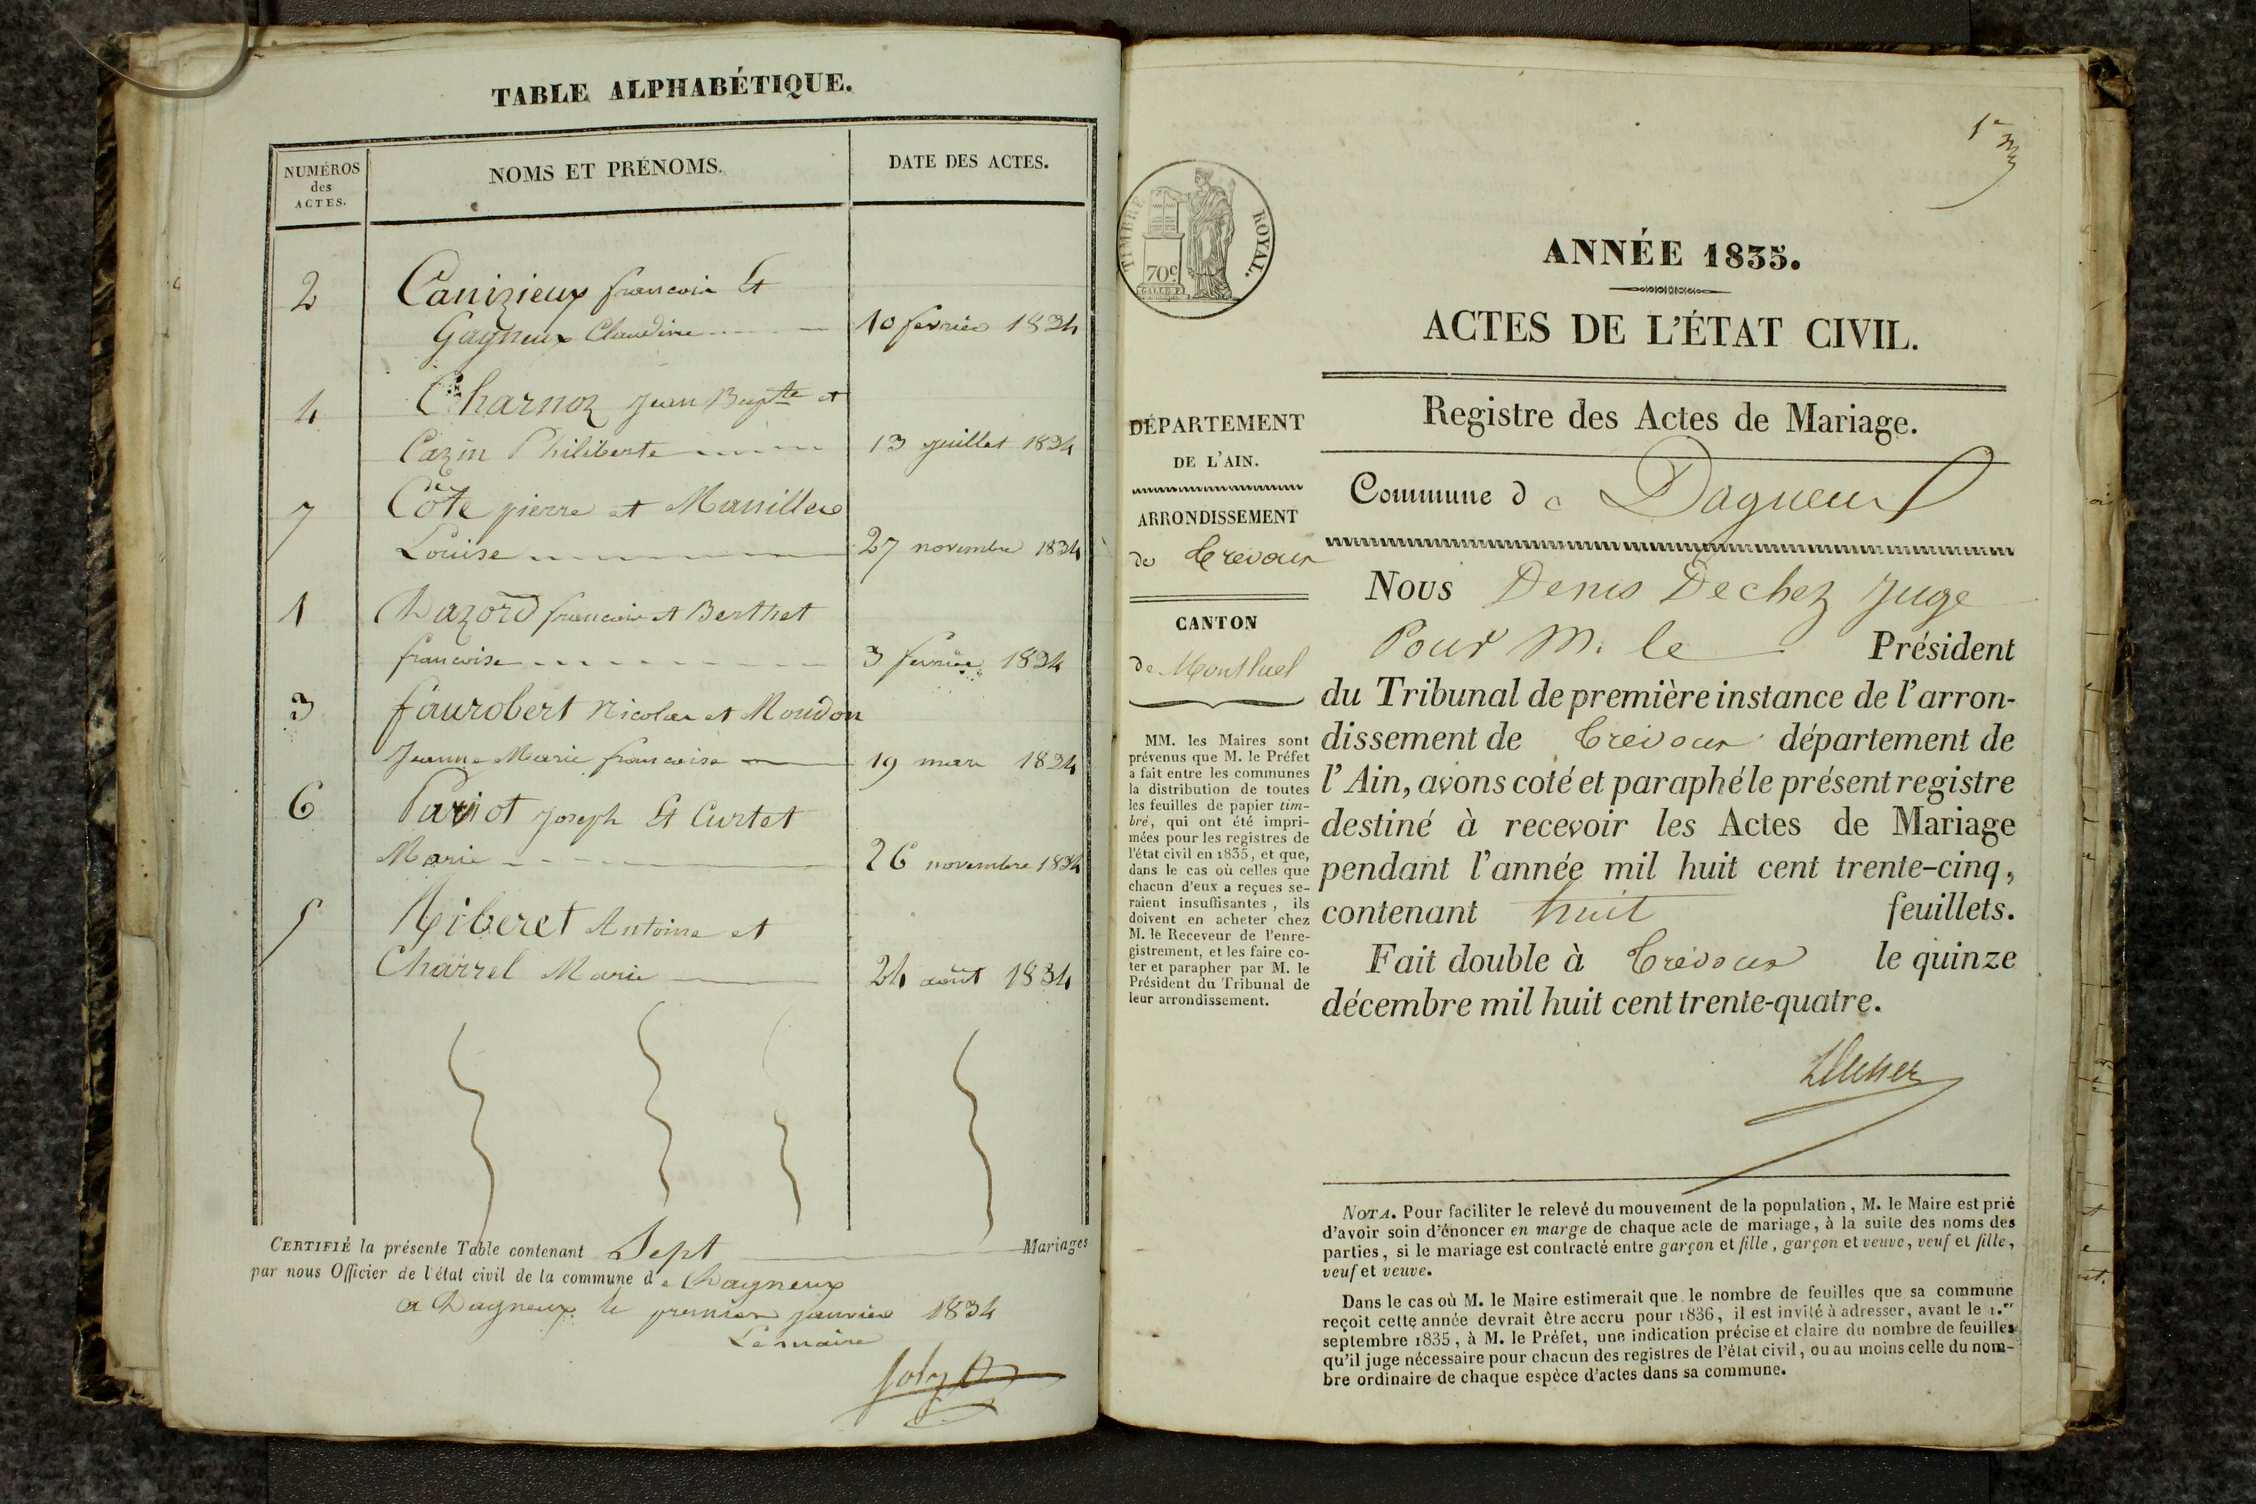 TABLE ALPHABÉTIQUE.
NUMÉROS
des
ACTES.
NOMS ET PRÉNOMS.
DATE DES ACTES.
2 Canizieux francois Et
Gagneux Claudine 10 fevrier 1834
4 Charnoz Jean Bapte et
Cazin Philiberte 13 juillet 1834
7 Côte pierre et Manillier
Louise 27 novembre 1834
1 Dazord francois et Berthet
francoise 3 fevrier 1834
3 faurobert Nicolas et Moudon
Jeanne Marie francoise 19 mars 1834
6 Pariot Joseph Et Curtet
Marie 26 novembre 1834
5 Riberet Antoine et
Charrel Marie 24 août 1834
CERTIFIÉ la présente Table contenant Sept Mariages
par nous Officier de l'état civil de la commune de Dagneux
a Dagneux le premier janvier 1834
Le maire
Joly
TIMBRE ROYAL.
70c
ANNÉE 1835.
ACTES DE L'ÉTAT CIVIL.
Registre des Actes de Mariage.
Commune de Dagneux
DÉPARTEMENT
DE L'AIN.
ARRONDISSEMENT
de Trevoux
CANTON
de Montluel
MM. les Maires sont
prévenus que M. le Préfet
a fait entre les communes
la distribution de toutes
les feuilles de papier tim-
bré, qui ont été impri-
mées pour les registres de
l'état civil en 1835, et que,
dans le cas où celles que
chacun d'eux a reçues se-
raient insuffisantes, ils
doivent en acheter chez
M. le Receveur de l'enre-
gistrement, et les faire co-
ter et parapher par M. le
Président du Tribunal de
leur arrondissement.
Nous Denis Dechez Juge
Pour M. le Président
du Tribunal de première instance de l'arron-
dissement de Trevoux département de
l'Ain, avons coté et paraphé le présent registre
destiné à recevoir les Actes de Mariage
pendant l'année mil huit cent trente-cinq,
contenant huit feuillets.
Fait double à Trevoux le quinze
décembre mil huit cent trente-quatre.
NOTA. Pour faciliter le relevé du mouvement de la population, M. le Maire est prié
d'avoir soin d'énoncer en marge de chaque acte de mariage, à la suite des noms des
parties, si le mariage est contracté entre garçon et fille, garçon et veuve, veuf et fille,
veuf et veuve.
Dans le cas où M. le Maire estimerait que le nombre de feuilles que sa commune
reçoit cette année devrait être accru pour 1836, il est invité à adresser, avant le 1.er
septembre 1835, à M. le Préfet, une indication précise et claire du nombre de feuilles
qu'il juge nécessaire pour chacun des registres de l'état civil, ou au moins celle du nom-
bre ordinaire de chaque espèce d'actes dans sa commune.